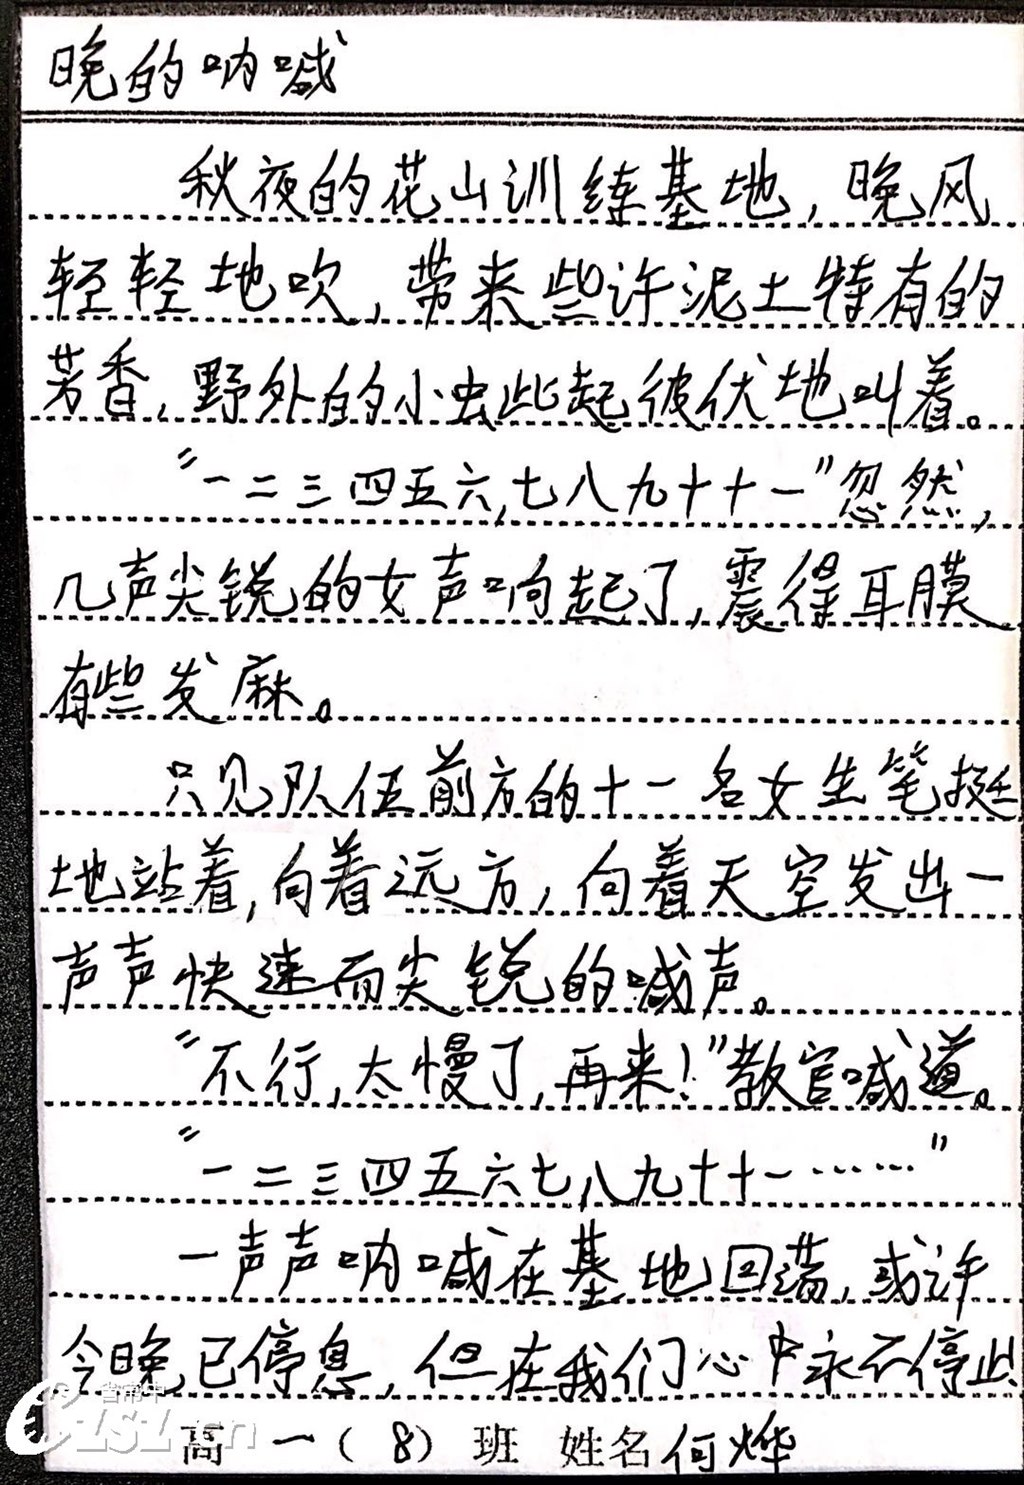 晚的呐喊
秋夜的花山训练基地，晚风
轻轻地吹，带来些许泥土特有的
芳香，野外的小虫此起彼伏地叫着。
“一二三四五六，七八九十十一”忽然，
几声尖锐的女声响起了，震得耳膜
有些发麻。
只见队伍前方的十一名女生笔挺
地站着，向着远方，向着天空发出一
声声快速而尖锐的喊声。
“不行，太慢了，再来！”教官喊道。
“一二三四五六七，八九十十一……”
一声声呐喊在基地回荡，或许
今晚已停息，但在我们心中永不停止
高一（8）班 姓名何烨